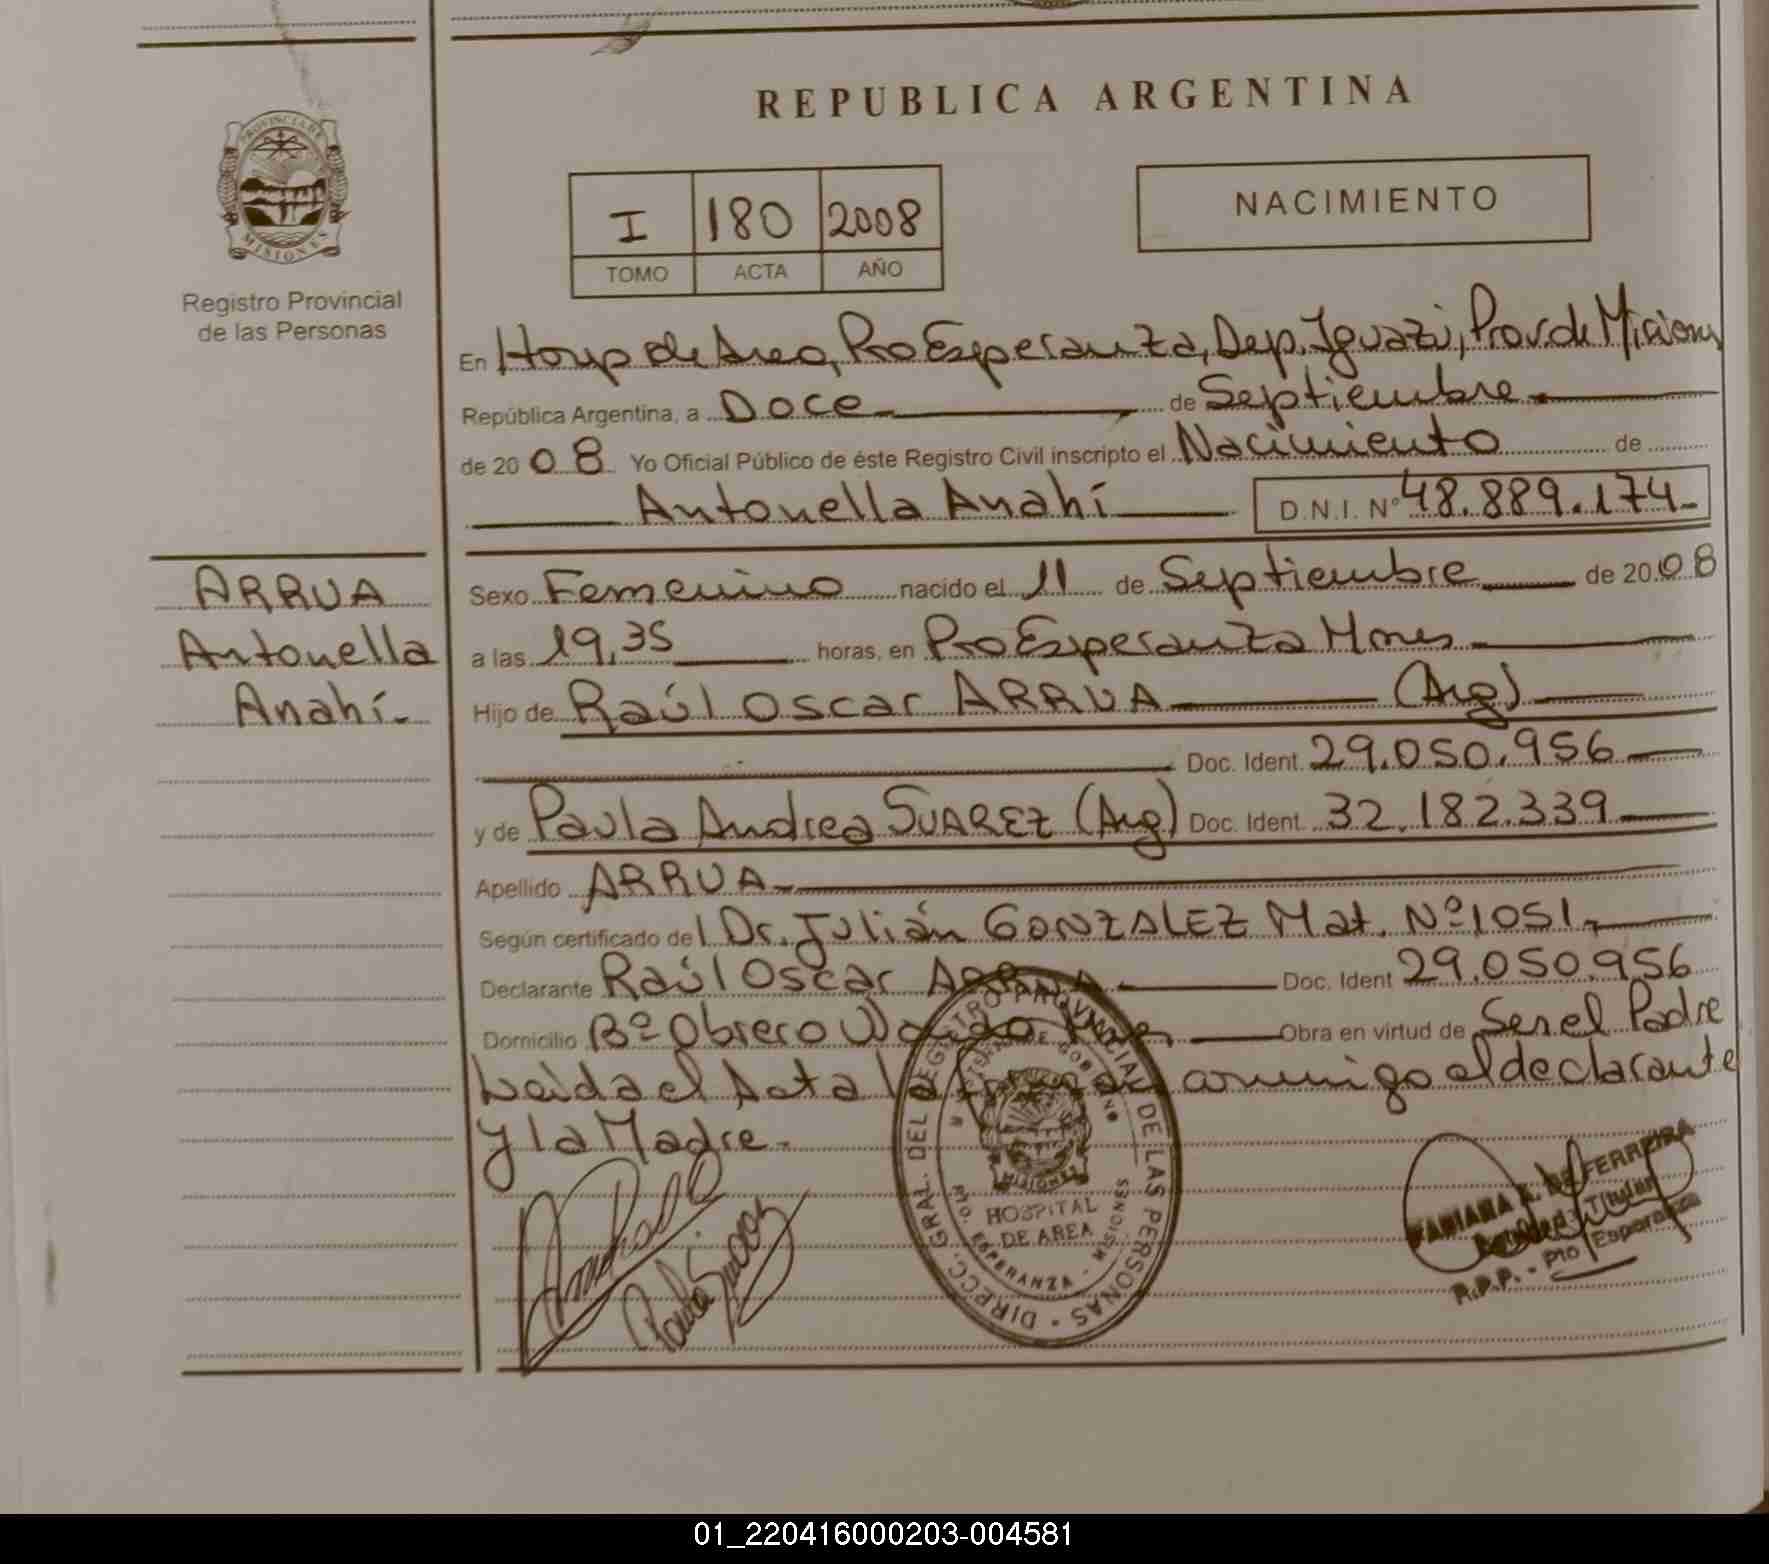 REPUBLICA ARGENTINA
PROVINCIA DE
MISIONES
Registro Provincial
de las Personas
I 180 2008
TOMO ACTA AÑO
NACIMIENTO
En Hosp de Area, Pto Esperanza, Dep. Iguazú, Prov de Misiones
República Argentina, a Doce de Septiembre
de 20 08 Yo Oficial Público de éste Registro Civil inscripto el Nacimiento de
Antonella Anahí D.N.I. Nº 48.889.174
ARRUA
Antonella
Anahí.
Sexo Femenino nacido el 11 de Septiembre de 20 08
a las 19,35 horas, en Pto Esperanza Mnes
Hijo de Raúl Oscar ARRUA (Arg)
Doc. Ident. 29.050.956
y de Paula Andrea SUAREZ (Arg) Doc. Ident. 32.182.339
Apellido ARRUA
Según certificado del Dr. Julián GONZALEZ Mat. Nº 1051
Declarante Raúl Oscar ARRUA Doc. Ident 29.050.956
Domicilio Bº Obrero Obra en virtud de Ser el Padre
Leida el Acta la conmigo el declarante
y la Madre.
DIRECC. GRAL. DEL REGISTRO PROVINCIAL DE LAS PERSONAS
MISIONES
HOSPITAL
DE AREA
ESPERANZA - MISIONES
Paula Suarez
FABIANA A. DE FERREIRA
Titular
R.P.P. - Pto Esperanza
01_220416000203-004581